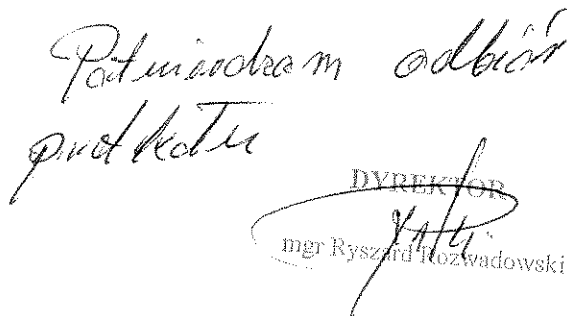 Potwierdzam odbiór
protokołu
DYREKTOR
mgr Ryszard Rozwadowski